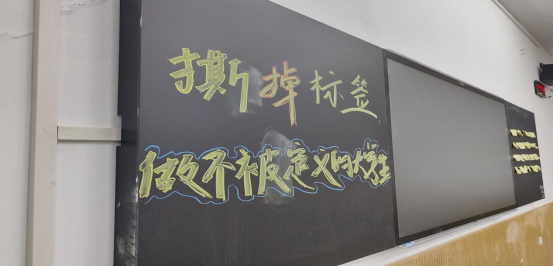 撕掉标签
做不被定义的大学生